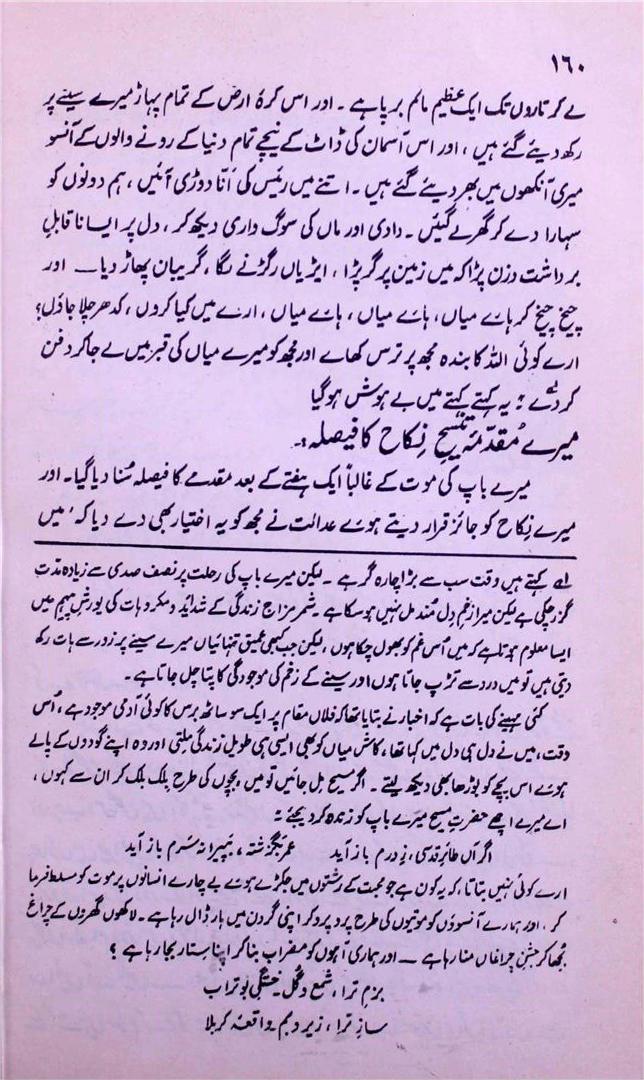 ١٦٠
لے کر تاروں تک ایک عظیم ماتم برپا ہے ۔ اور اس کرۂ ارض کے تمام پہاڑ میرے سینے پر
رکھ دیئے گئے ہیں ، اور اس آسمان کی ڈاٹ کے نیچے تمام دنیا کے رونے والوں کے آنسو
میری آنکھوں میں بھر دیئے گئے ہیں ۔ اتنے میں رئیس کی انّا دوڑی آئیں ، ہم دونوں کو
سہارا دے کر گھر لے گئیں ۔ دادی اور ماں کی سوگ واری دیکھ کر ، دل پر ایسا ناقابلِ
برداشت وزن پڑا کہ میں زمین پر گر پڑا ، ایڑیاں رگڑنے لگا ، گریبان پھاڑ دیا — اور
چیخ چیخ کر ہاے میاں ، ہاے میاں ، ہاے میاں ، ارے میں کیا کروں ، کدھر چلا جاؤں ؟
ارے کوئی اللہ کا بندہ مجھ پر ترس کھاے اور مجھ کو میرے میاں کی قبر میں لے جا کر دفن
کر دے ؛ یہ کہتے کہتے میں بے ہوش ہو گیا
میرے مُقدّمۂ تنسیخِ نِکاح کا فیصلہ :۔
میرے باپ کی موت کے غالباً ایک ہفتے کے بعد مقدمے کا فیصلہ سُنا دیا گیا ۔ اور
میرے نِکاح کو جائز قرار دیتے ہوے عدالت نے مجھ کو یہ اختیار بھی دے دیا کہ ’میں
لے کہتے ہیں وقت سب سے بڑا چارہ گر ہے ۔ لیکن میرے باپ کی رحلت پر نصف صدی سے زیادہ مدّت
گزر چکی ہے لیکن میرا زخمِ دِل مُندمل نہیں ہو سکا ہے ۔ شمر مزاج زندگی کے شداید و مکروہات کی یورشِ پیہم میں
ایسا معلوم ہوتا ہے کہ میں اُس غم کو بھول چکا ہوں ، لیکن جب کبھی عمیق تنہائیاں میرے سینے پر زور سے ہات رکھ
دیتی ہیں تو میں درد سے تڑپ جاتا ہوں اور سینے کے زخم کی موجودگی کا پتا چل جاتا ہے ۔
کئی مہینے کی بات ہے کہ اخبار نے بتایا تھا کہ فلاں مقام پر ایک سو ساٹھ برس کا کوئی آدمی موجود ہے ، اُس
وقت ، میں نے دل ہی دل میں کہا تھا ، کاش میاں کو بھی ایسی ہی طویل زندگی ملتی اور وہ اپنے گودوں کے پالے
ہوئے اس بچے کو بوڑھا بھی دیکھ لیتے ۔ اگر مسیح مل جائیں تو میں ، بچوں کی طرح بلک بلک کر ان سے کہوں ،
اے میرے اچھے حضرتِ مسیح میرے باپ کو زندہ کر دیجئے ؎
اگر آں طائرِ قدسی ، زِ درم باز آید عمرِ بگزشتہ ، بہ پیرانہ سَرم باز آید
ارے کوئی نہیں بتاتا ، کہ یہ کون ہے جو محبت کے رشتوں میں جکڑے ہوے بے چارے انسانوں پر موت کو مسلط فرما
کر ، اور ہمارے آنسوؤں کو موتیوں کی طرح پرو پرو کر اپنی گردن میں ہار ڈال رہا ہے ۔ لاکھوں گھروں کے چراغ
بُجھا کر جشنِ چراغاں منا رہا ہے — اور ہماری آہوں کو مضراب بنا کر اپنا ستار بجا رہا ہے ؟
بزم ترا ، شمع و گُل خستگیِ بوتراب
ساز ترا ، زیر و بم واقعۂ کربلا